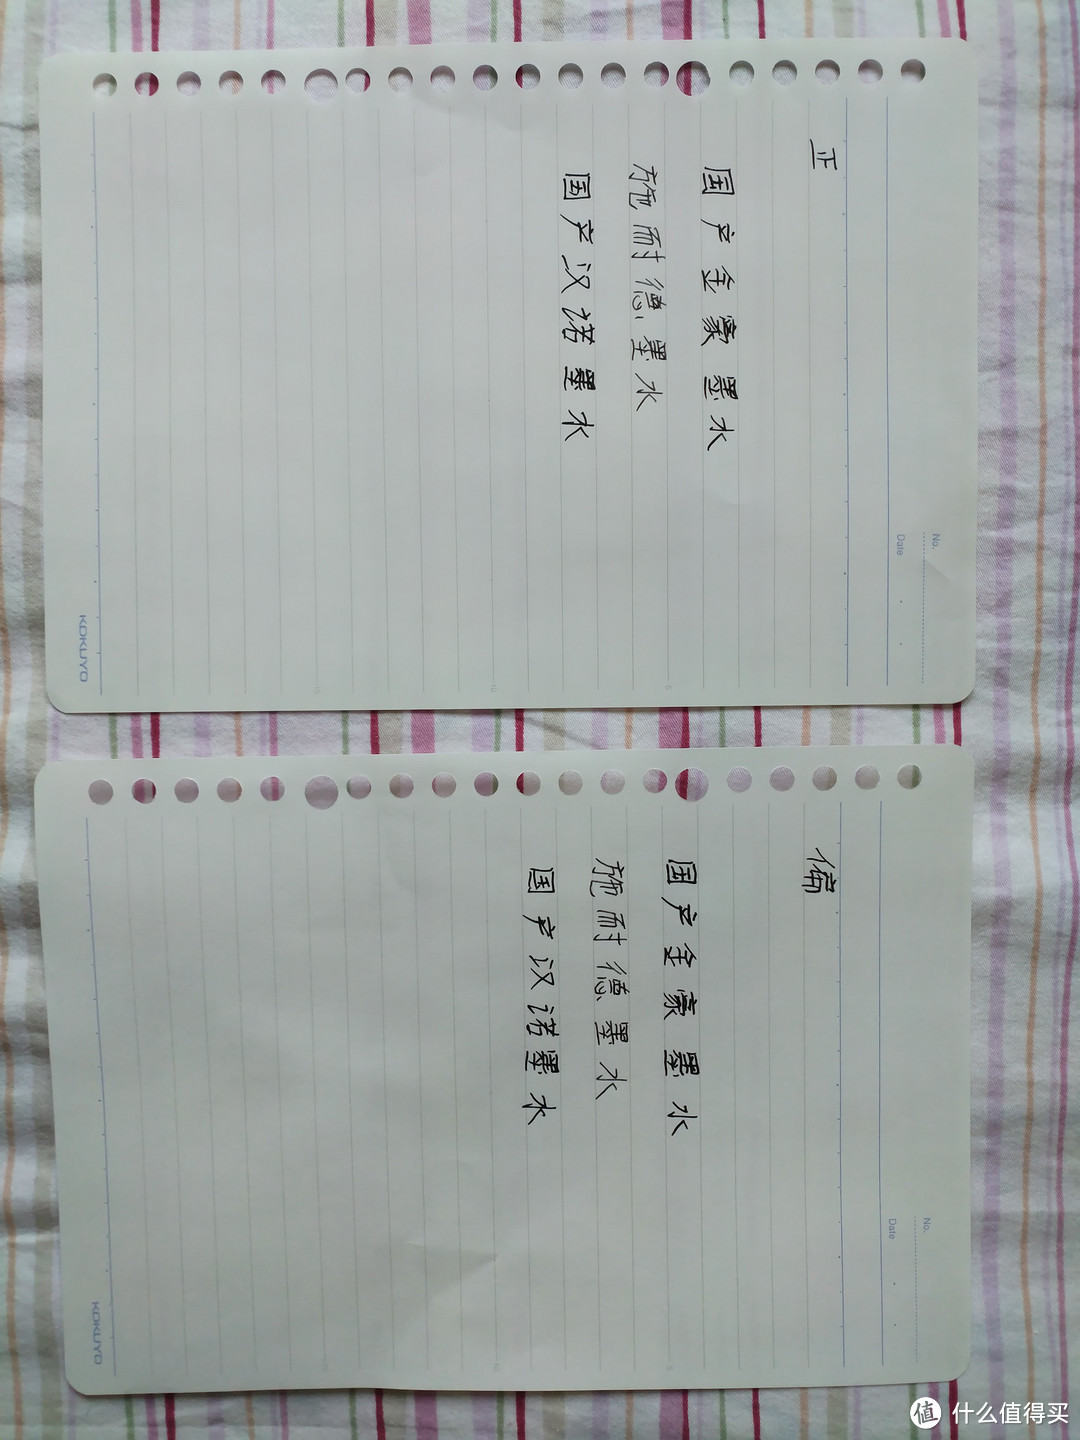 No.
Date
正
国产金豪墨水
施耐德墨水
国产汉诺墨水
KOKUYO
No.
Date
偏
国产金豪墨水
施耐德墨水
国产汉诺墨水
KOKUYO
值 什么值得买